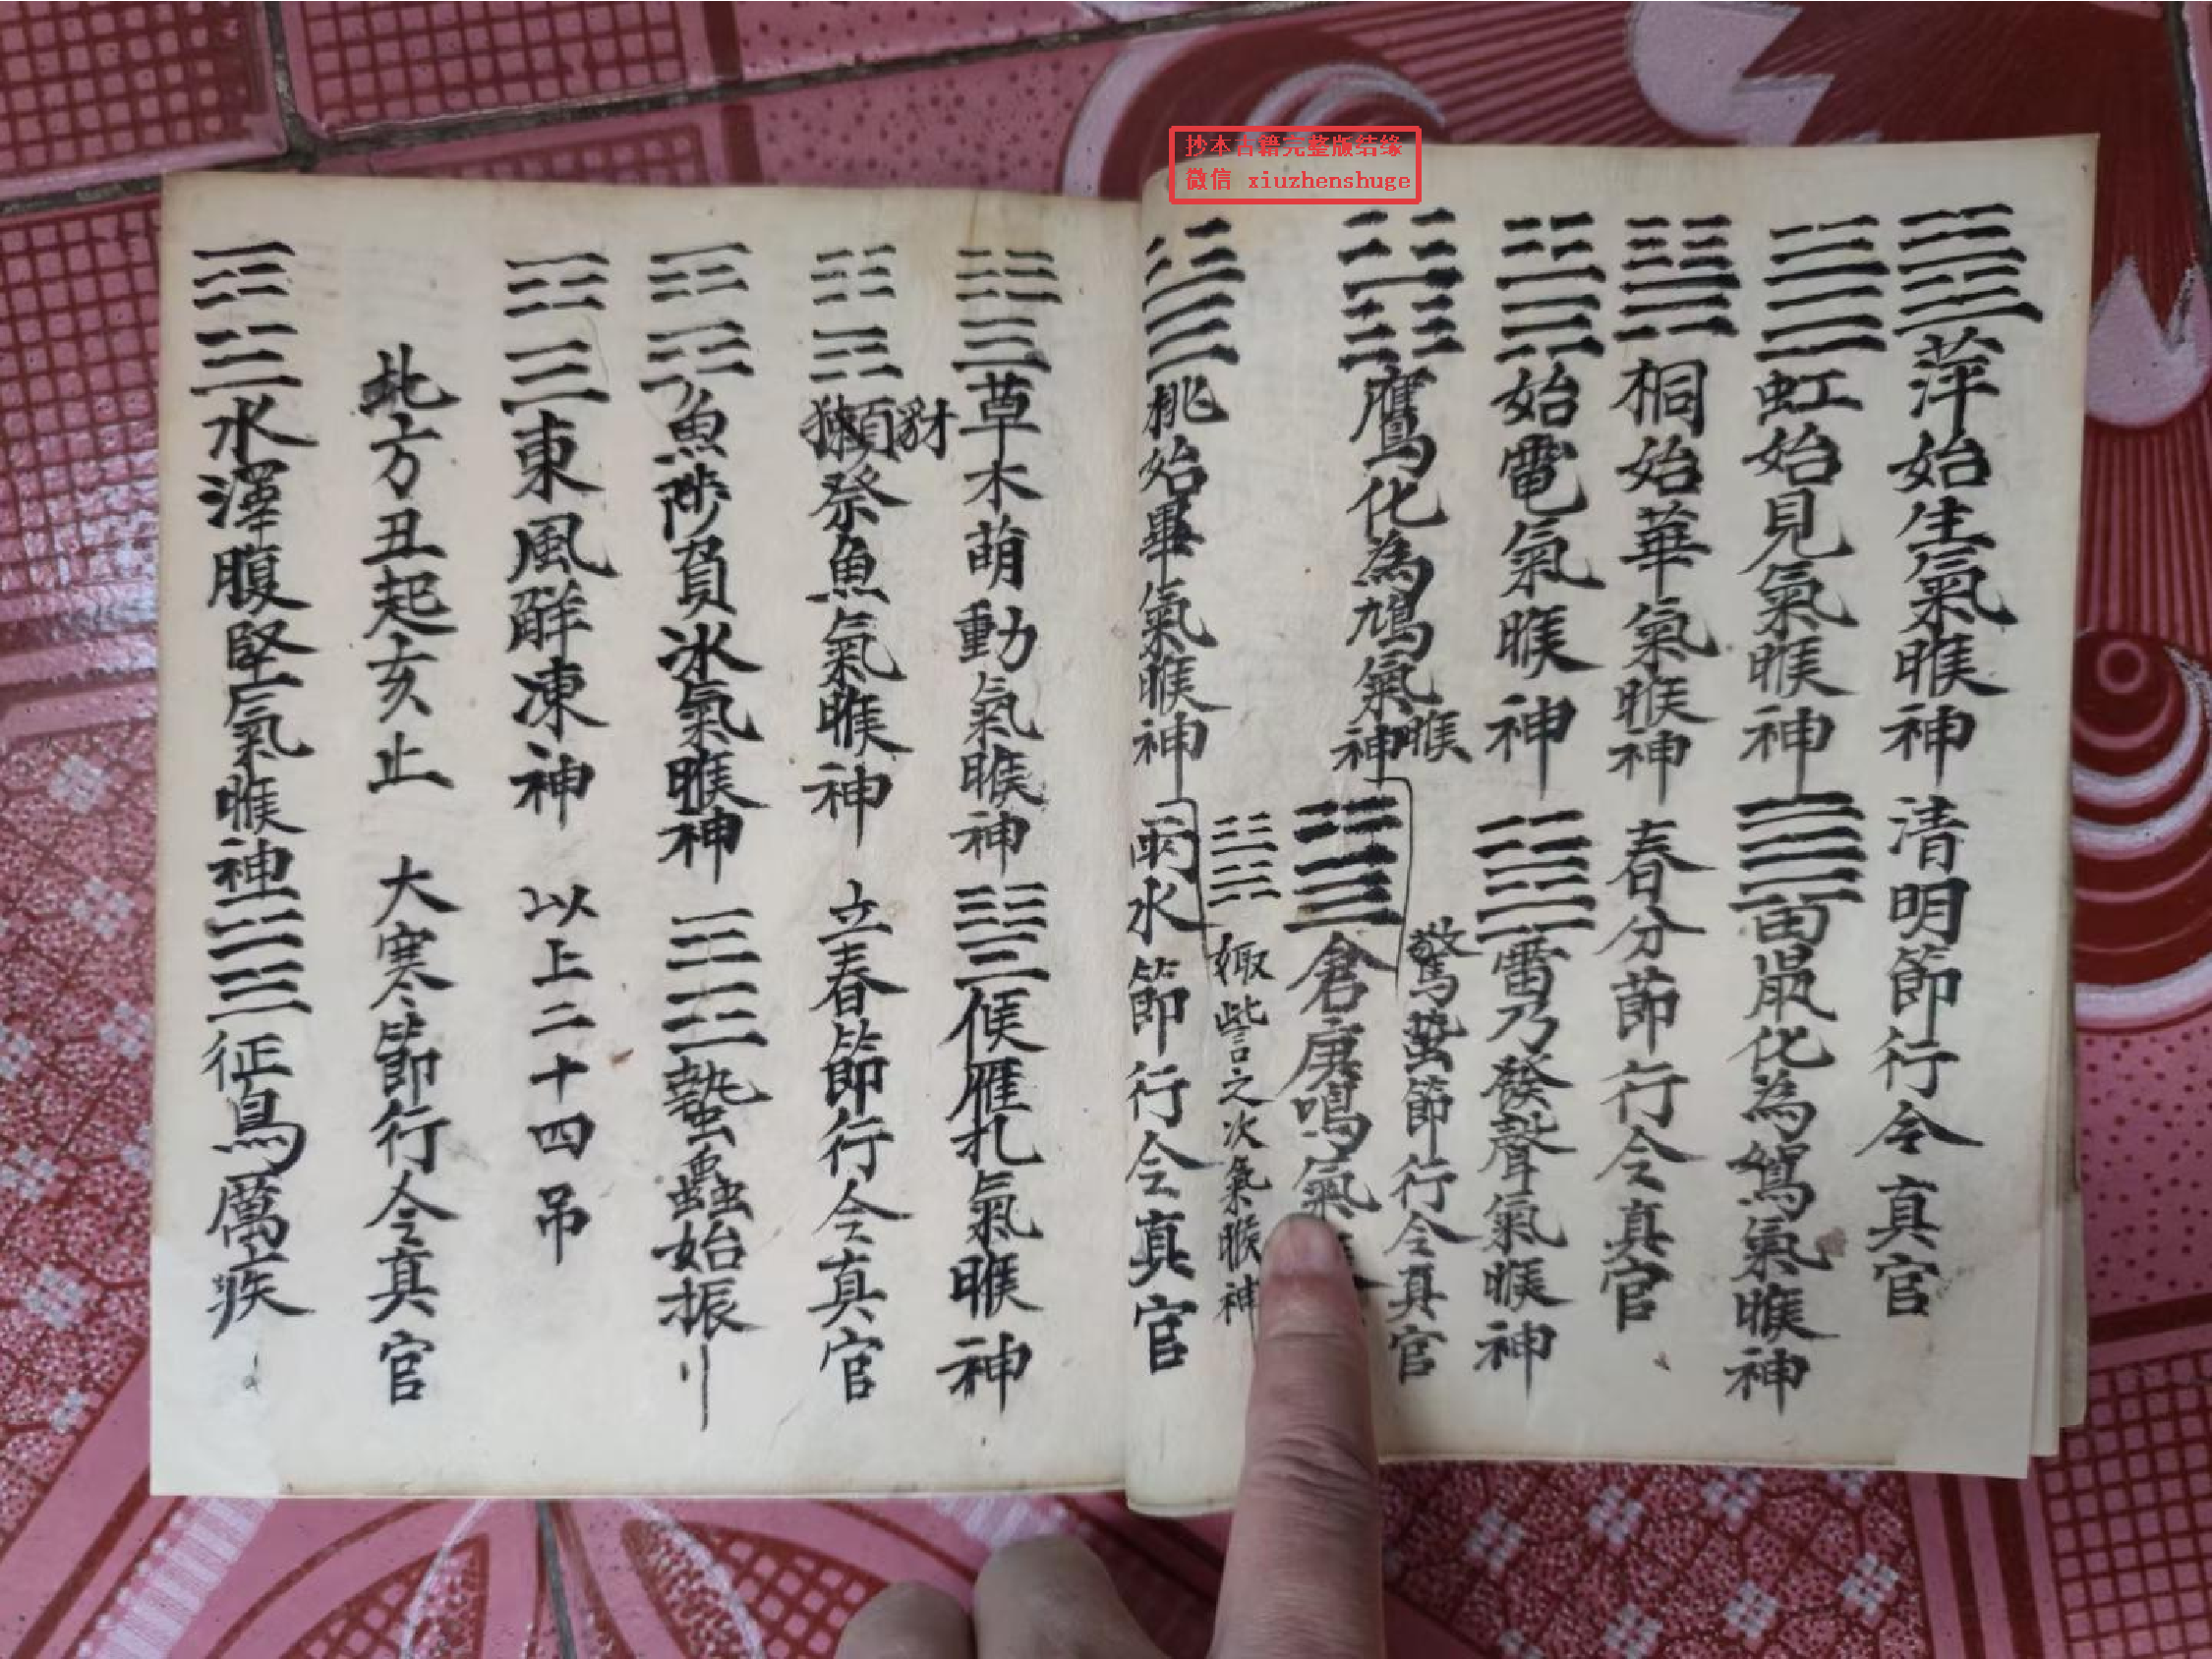 抄本古籍完整版结缘
微信 xiuzhenshuge
萍始生氣睺神 清明節行令真官
虹始見氣睺神 田鼠化為鴽氣睺神
桐始華氣睺神 春分節行令真官
始電氣睺神 雷乃發聲氣睺神
鷹化為鳩氣睺神 驚蟄節行令真官
倉庚鳴氣
娵訾之次氣睺神
桃始畢氣睺神 雨水節行令真官
草木萌動氣睺神 候雁北氣睺神
豺獺祭魚氣睺神 立春節行令真官
魚陟負冰氣睺神 蟄蟲始振
東風解凍神 以上二十四吊
北方丑起亥止 大寒節行令真官
水澤腹堅氣睺神 征鳥厲疾